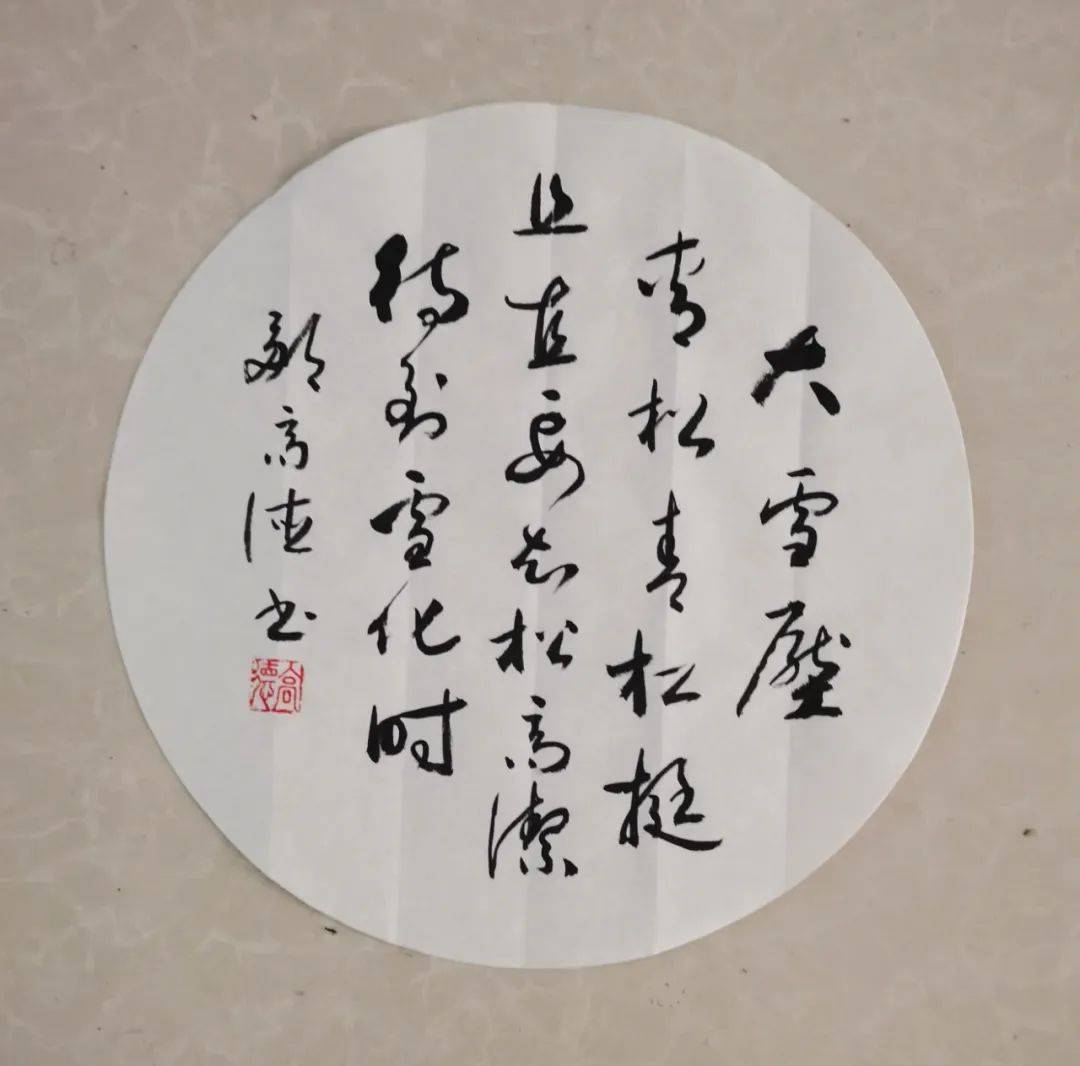 大雪壓
青松青松挺
且直要知松高潔
待到雪化时
高德书
高德